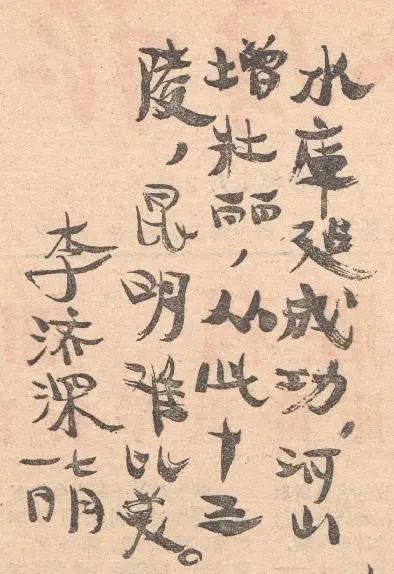 水库廷成功，河山
增壮丽，从此十三
陵，昆明难比美。
李济深 七月
一日